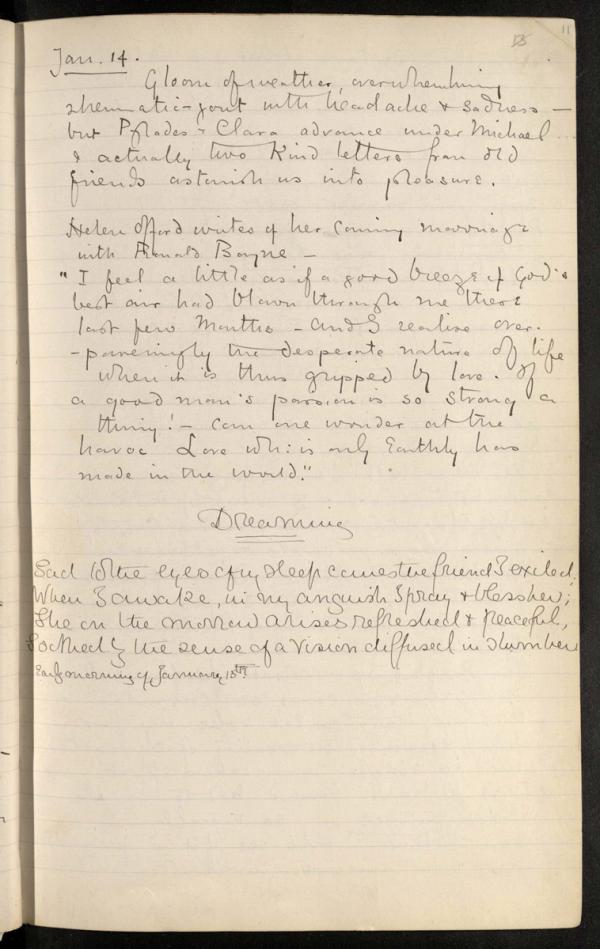 11
15
Jan. 14.
Gloom of weather, overwhelming
rheumatic-gout with headache & sadness —
but Pylades & Clara advance under Michael
& actually two kind letters from old
friends astonish us into pleasure.
Helen Offord writes of her coming marriage
with Ronald Bayne —
"I feel a little as if a good breeze of God's
best air had blown through me these
last few months – and I realise over-
-poweringly the desperate nature of life
when it is thus gripped by love. If
a good man's passion is so strong a
thing! – can one wonder at the
havoc Love wh: is only Earthly has
made in the world."
Dreaming
Sad to the eyes of my sleep comes the friend I exiled,
When I awake, in my anguish I pray & bless her;
She on the morrow arises refreshed & peaceful,
Soothed by the sense of a vision diffused in slumber
Early morning of January 15th